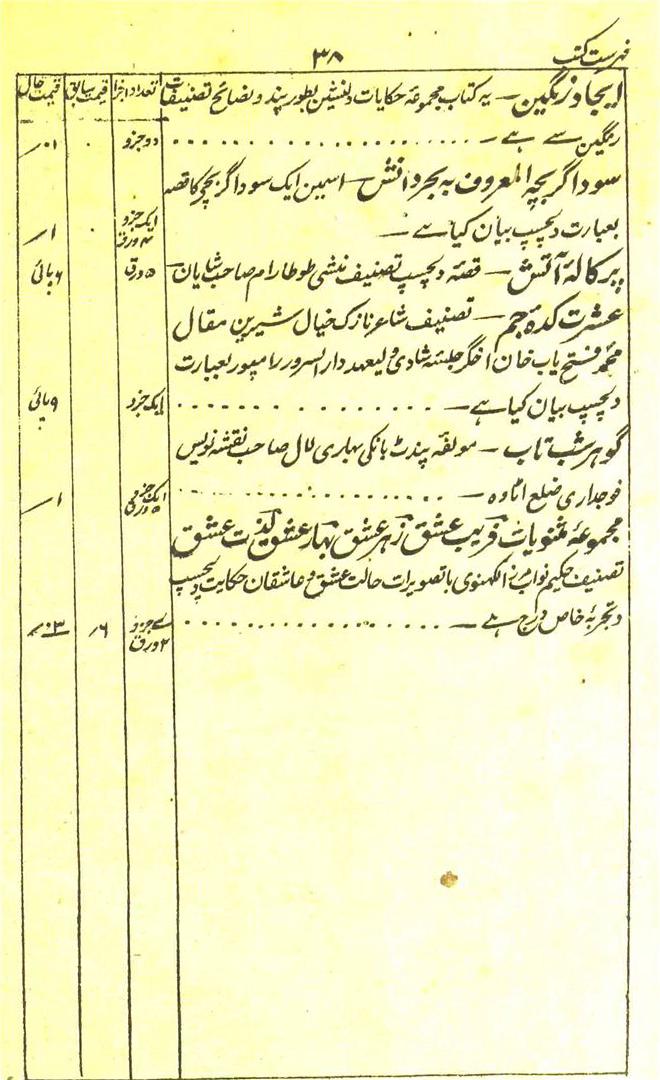 فہرست کتب
۳۸
تعداد اجزا قیمت سابق قیمت حال
ایجاد رنگین — یہ کتاب مجموعۂ حکایات دلنشین بطور پند و نصائح تصنیفات
رنگین سے ہے — دو جزو ۰ ۱۰ر
سوداگر بچہ المعروف بہ بحر دانش — اسمین ایک سوداگر بچی کا قصہ
بعبارت دلچسپ بیان کیا ہے — ایک جزو ۴ ورق ۰ ۱ر
پرکالۂ آتش — قصہ دلچسپ تصنیف منشی طوطا رام صاحب شایان ۵ ورق ۶ پائی
عشرت کدۂ جم — تصنیف شاعر نازک خیال شیرین مقال
محمد فتح یاب خان اخگر جلسۂ شادی ولیعہد دار السرور رامپور بعبارت
دلچسپ بیان کیا ہے — ایک جزو ۹ پائی
گوہر شب تاب — مولفہ پنڈت بانکی بہاری لال صاحب نقشہ نویس
فوجداری ضلع اٹاوہ — ایک جزو ۱ر
مجموعۂ مثنویات فریب عشق زہر عشق بہار عشق لذت عشق
تصنیف حکیم نواب مرزا لکھنوی با تصویرات حالت عشق و عاشقان حکایت دلچسپ
و تجربۂ خاص درج ہے — ۷ جزو ۲ ورق ۶ر ۳ر